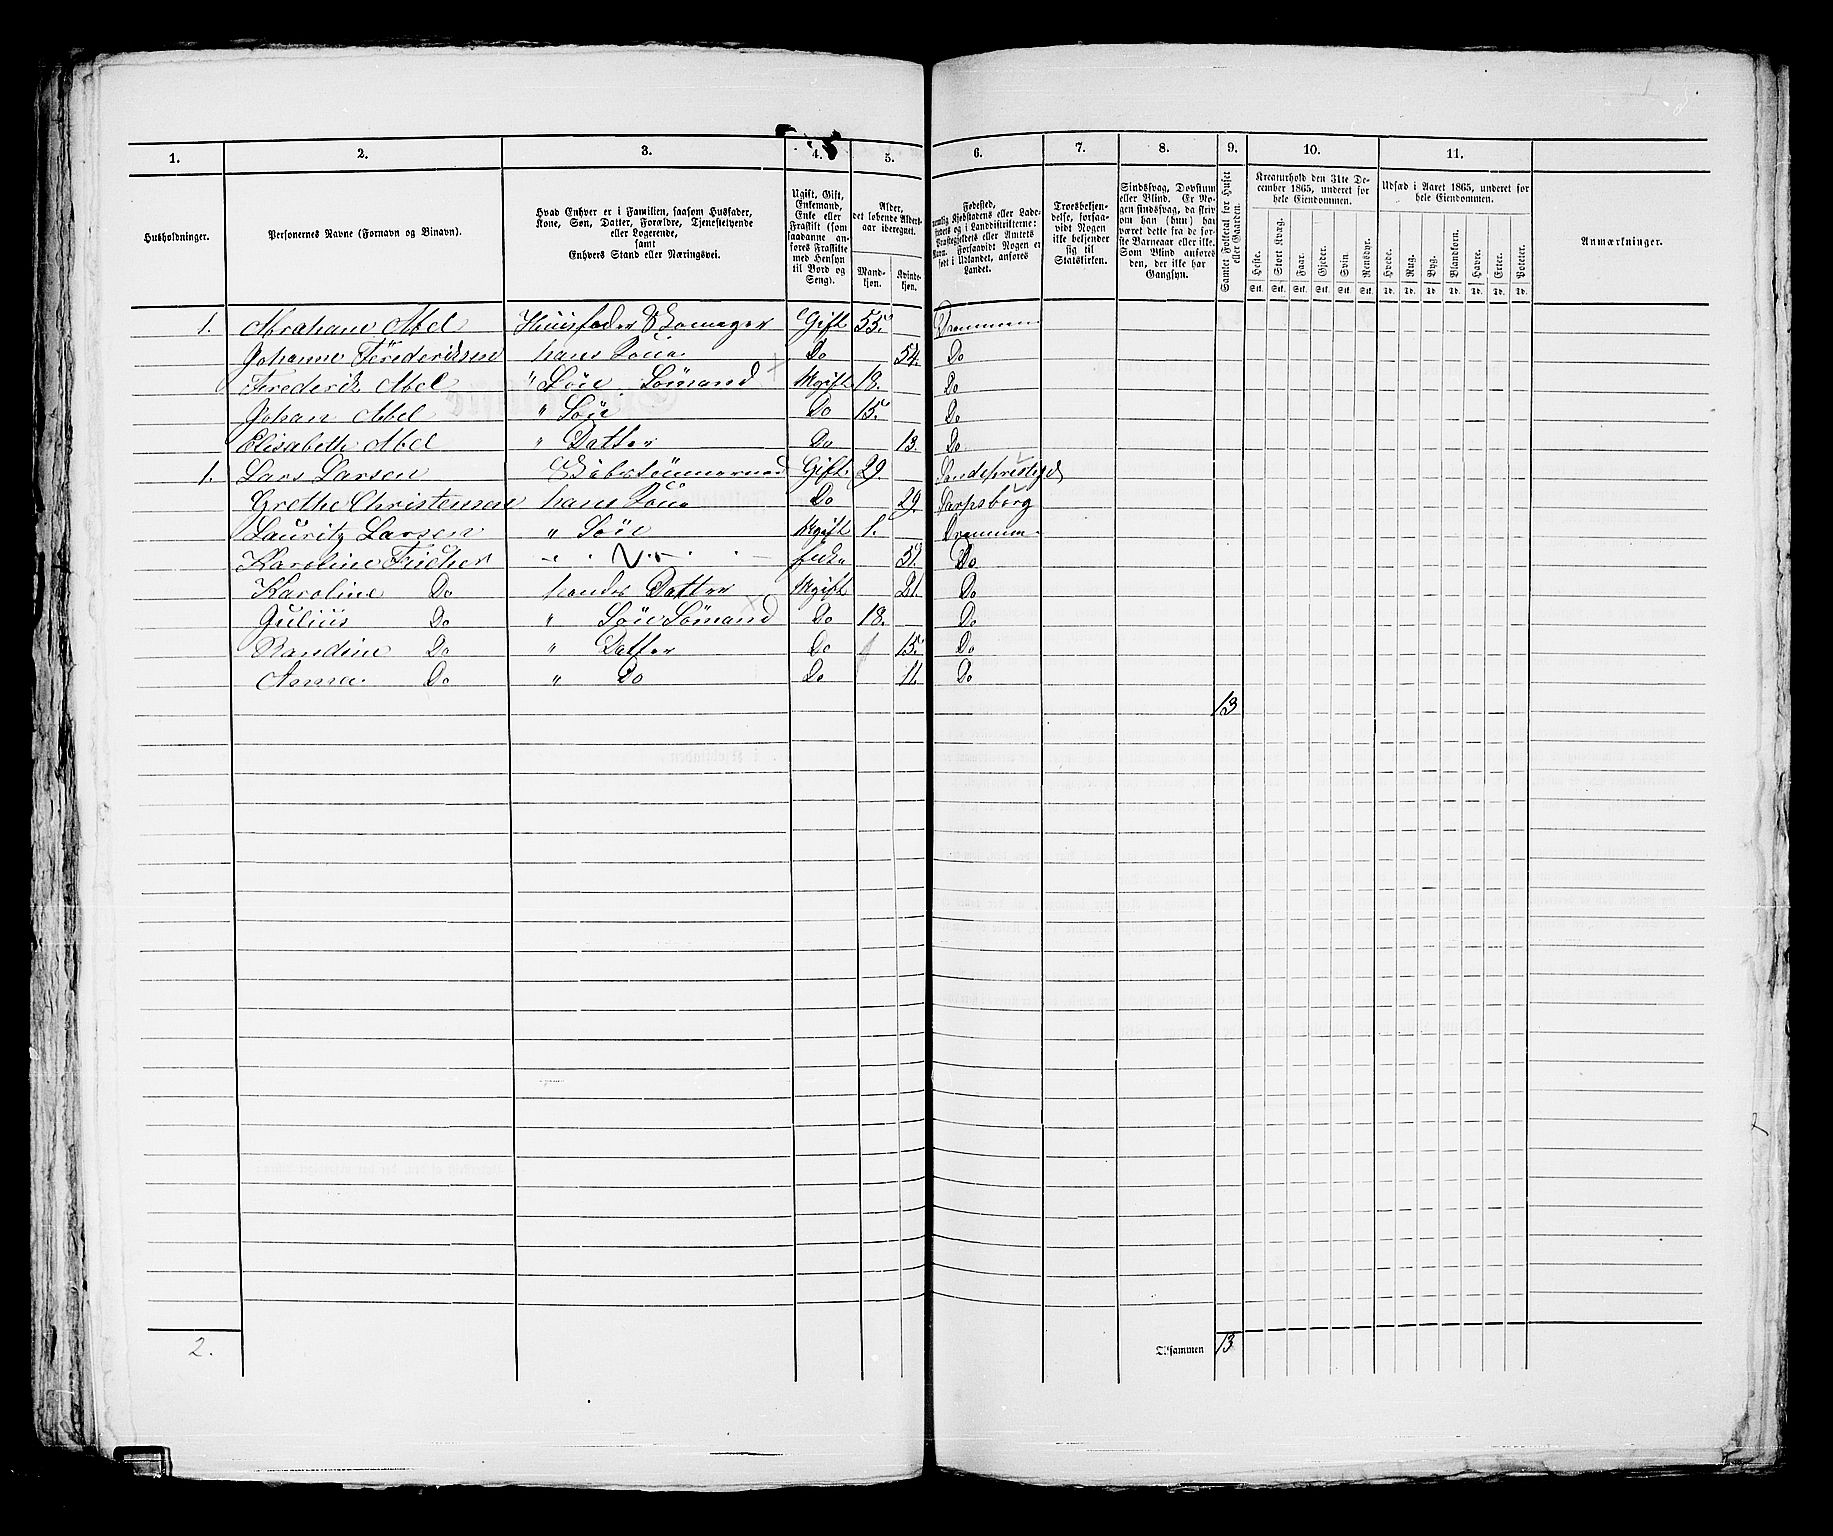 1. 2. 3. 4. 5. 6. 7. 8. 9. 10. 11.
Husholdninger.
Personernes Navne (Fornavn og Binavn).
Hvad Enhver er i Familien, saasom Husfader,
Kone, Søn, Datter, Forældre, Tjenestetyende
eller Logerende,
samt
Enhvers Stand eller Næringsvei.
Ugift, Gift,
Enkemand,
Enke eller
Fraskilt (som
saadanne an-
føres Fraskilte
med Hensyn
til Bord og
Seng).
Alder,
det løbende Alders-
aar iberegnet.
Mand-
kjøn.
Kvinde-
kjøn.
Fødested,
nemlig Kjøbstadens eller Lade-
stedets og i Landdistrikterne:
Præstegjeldets eller Amtets
Navn. Forsaavidt Nogen er
født i Udlandet, anføres
Landet.
Troesbekjen-
delse, forsaa-
vidt Nogen
ikke bekjender
sig til
Statskirken.
Sindssvag, Døvstum
eller Blind. Er No-
gen sindssvag, da skriv
om han (hun) har
været dette fra de før-
ste Barneaar eller ikke.
Som Blind anføres
den, der ikke har
Gangsyn.
Samlet Folketal for Huset
eller Gaarden.
Kreaturhold den 31te De-
cember 1865, underet for
hele Eiendommen.
Heste. Stort Kvæg. Faar. Gjeder. Svin. Rensdyr.
Stk. Stk. Stk. Stk. Stk. Stk.
Udsæd i Aaret 1865, underet for
hele Eiendommen.
Hvede. Rug. Byg. Blandkorn. Havre. Erter. Poteter.
Td. Td. Td. Td. Td. Td. Td.
Anmærkninger.
1. Abraham Abel Huusfader Skomager Gift 55. Drammen
Johanne Frederiksen hans Kone Do 54. Do
Frederik Abel " Søn Sømand Ugift 18. Do
Johan Abel " Søn Do 15. Do
Elisabeth Abel " Datter Do 13. Do
1. Lars Larsen Gift 29. Sandeprestegd
Grethe Christensen hans Kone Do 29. Sarpsborg
Lauritz Larsen " Søn Ugift 1. Drammen
Karoline Fischer Enke 51. Do
Karoline Do hendes Datter Ugift 21. Do
Julius Do " Søn Sømand Do 18. Do
Randine Do " Datter Do 15. Do
Anna Do " Do Do 11. Do
13
2. Tilsammen 13